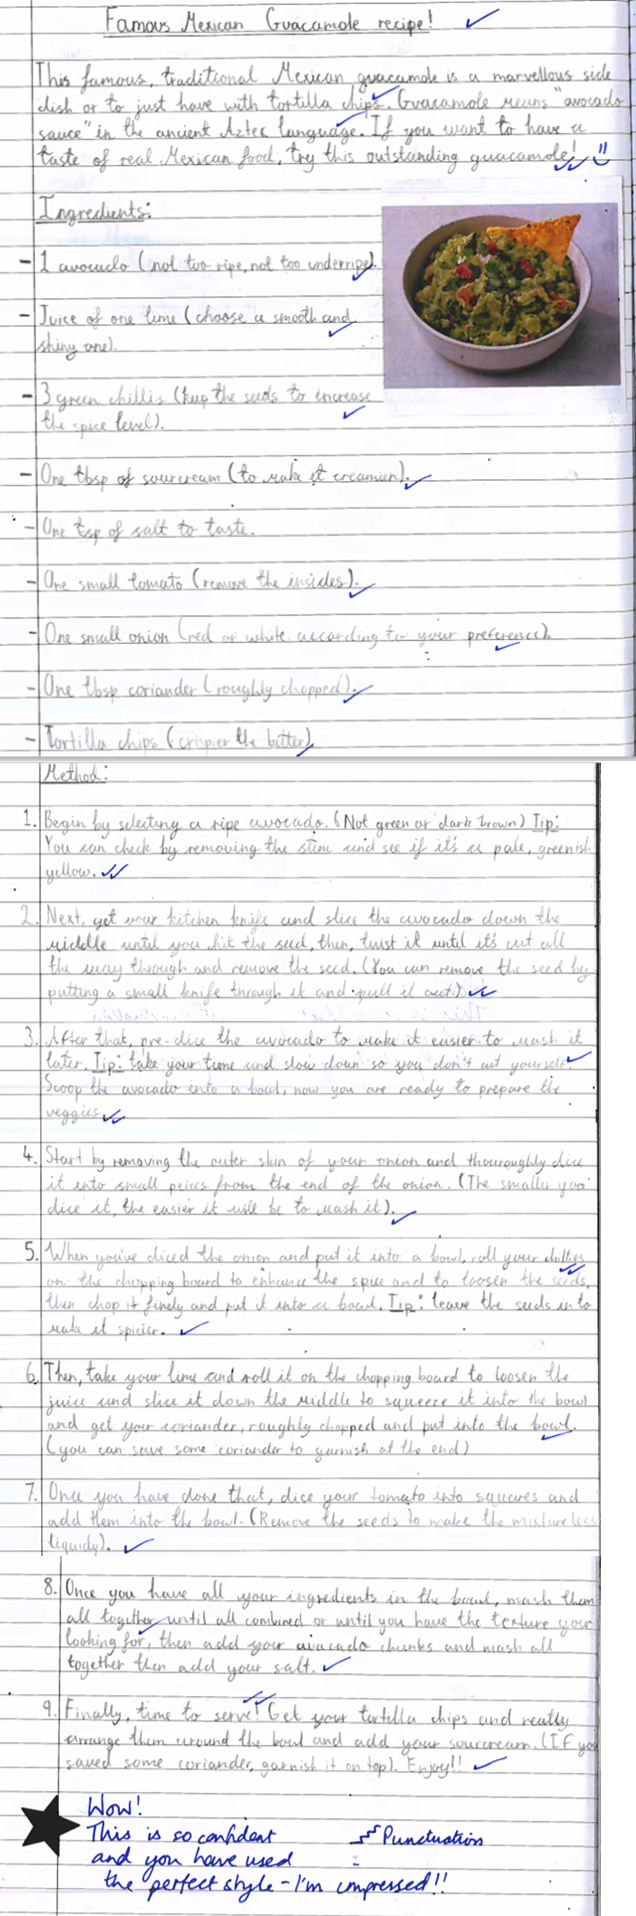 Famous Mexican Guacamole recipe!
This famous, traditional Mexican guacamole is a marvellous side
dish or to just have with tortilla chips. Guacamole means "avocado
sauce" in the ancient Aztec language. If you want to have a
taste of real Mexican food, try this outstanding guacamole!
Ingredients:
- 1 avocado (not too ripe, not too underripe)
- Juice of one lime (choose a smooth and
shiny one).
- 3 green chillis (keep the seeds to increase
the spice level).
- One tbsp of sourcream (to make it creamier).
- One tsp of salt to taste.
- One small tomato (remove the insides).
- One small onion (red or white according to your preference).
- One tbsp coriander (roughly chopped).
- Tortilla chips (crispier the better)
Method:
1. Begin by selecting a ripe avocado. (Not green or dark brown) Tip:
You can check by removing the stem and see if it's a pale, greenish
yellow.
2. Next, get your kitchen knife and slice the avocado down the
middle until you hit the seed, then, twist it until it's cut all
the way through and remove the seed. (You can remove the seed by
putting a small knife through it and pull it out)
3. After that, pre-dice the avocado to make it easier to mash it
later. Tip: take your time and slow down so you don't cut yourself.
Scoop the avocado into a bowl, now you are ready to prepare the
veggies.
4. Start by removing the outer skin of your onion and thouroughly dice
it into small peices from the end of the onion. (The smaller you
dice it, the easier it will be to mash it).
5. When you've diced the onion and put it into a bowl, roll your chillies
on the chopping board to enhance the spice and to loosen the seeds,
then chop it finely and put it into a bowl. Tip: leave the seeds in to
make it spicier.
6. Then, take your lime and roll it on the chopping board to loosen the
juice and slice it down the middle to squeeze it into the bowl
and get your coriander, roughly chopped and put into the bowl.
(you can save some coriander to garnish at the end)
7. Once you have done that, dice your tomato into squares and
add them into the bowl. (Remove the seeds to make the mixture less
liquidy).
8. Once you have all your ingredients in the bowl, mash them
all together until all combined or until you have the texture your
looking for, then add your avacado chunks and mash all
together then add your salt.
9. Finally, time to serve! Get your tortilla chips and neatly
arrange them around the bowl and add your sourcream. (If you
saved some coriander, garnish it on top). Enjoy!!
Wow!
This is so confident
and you have used
the perfect style - I'm impressed!!
Punctuation